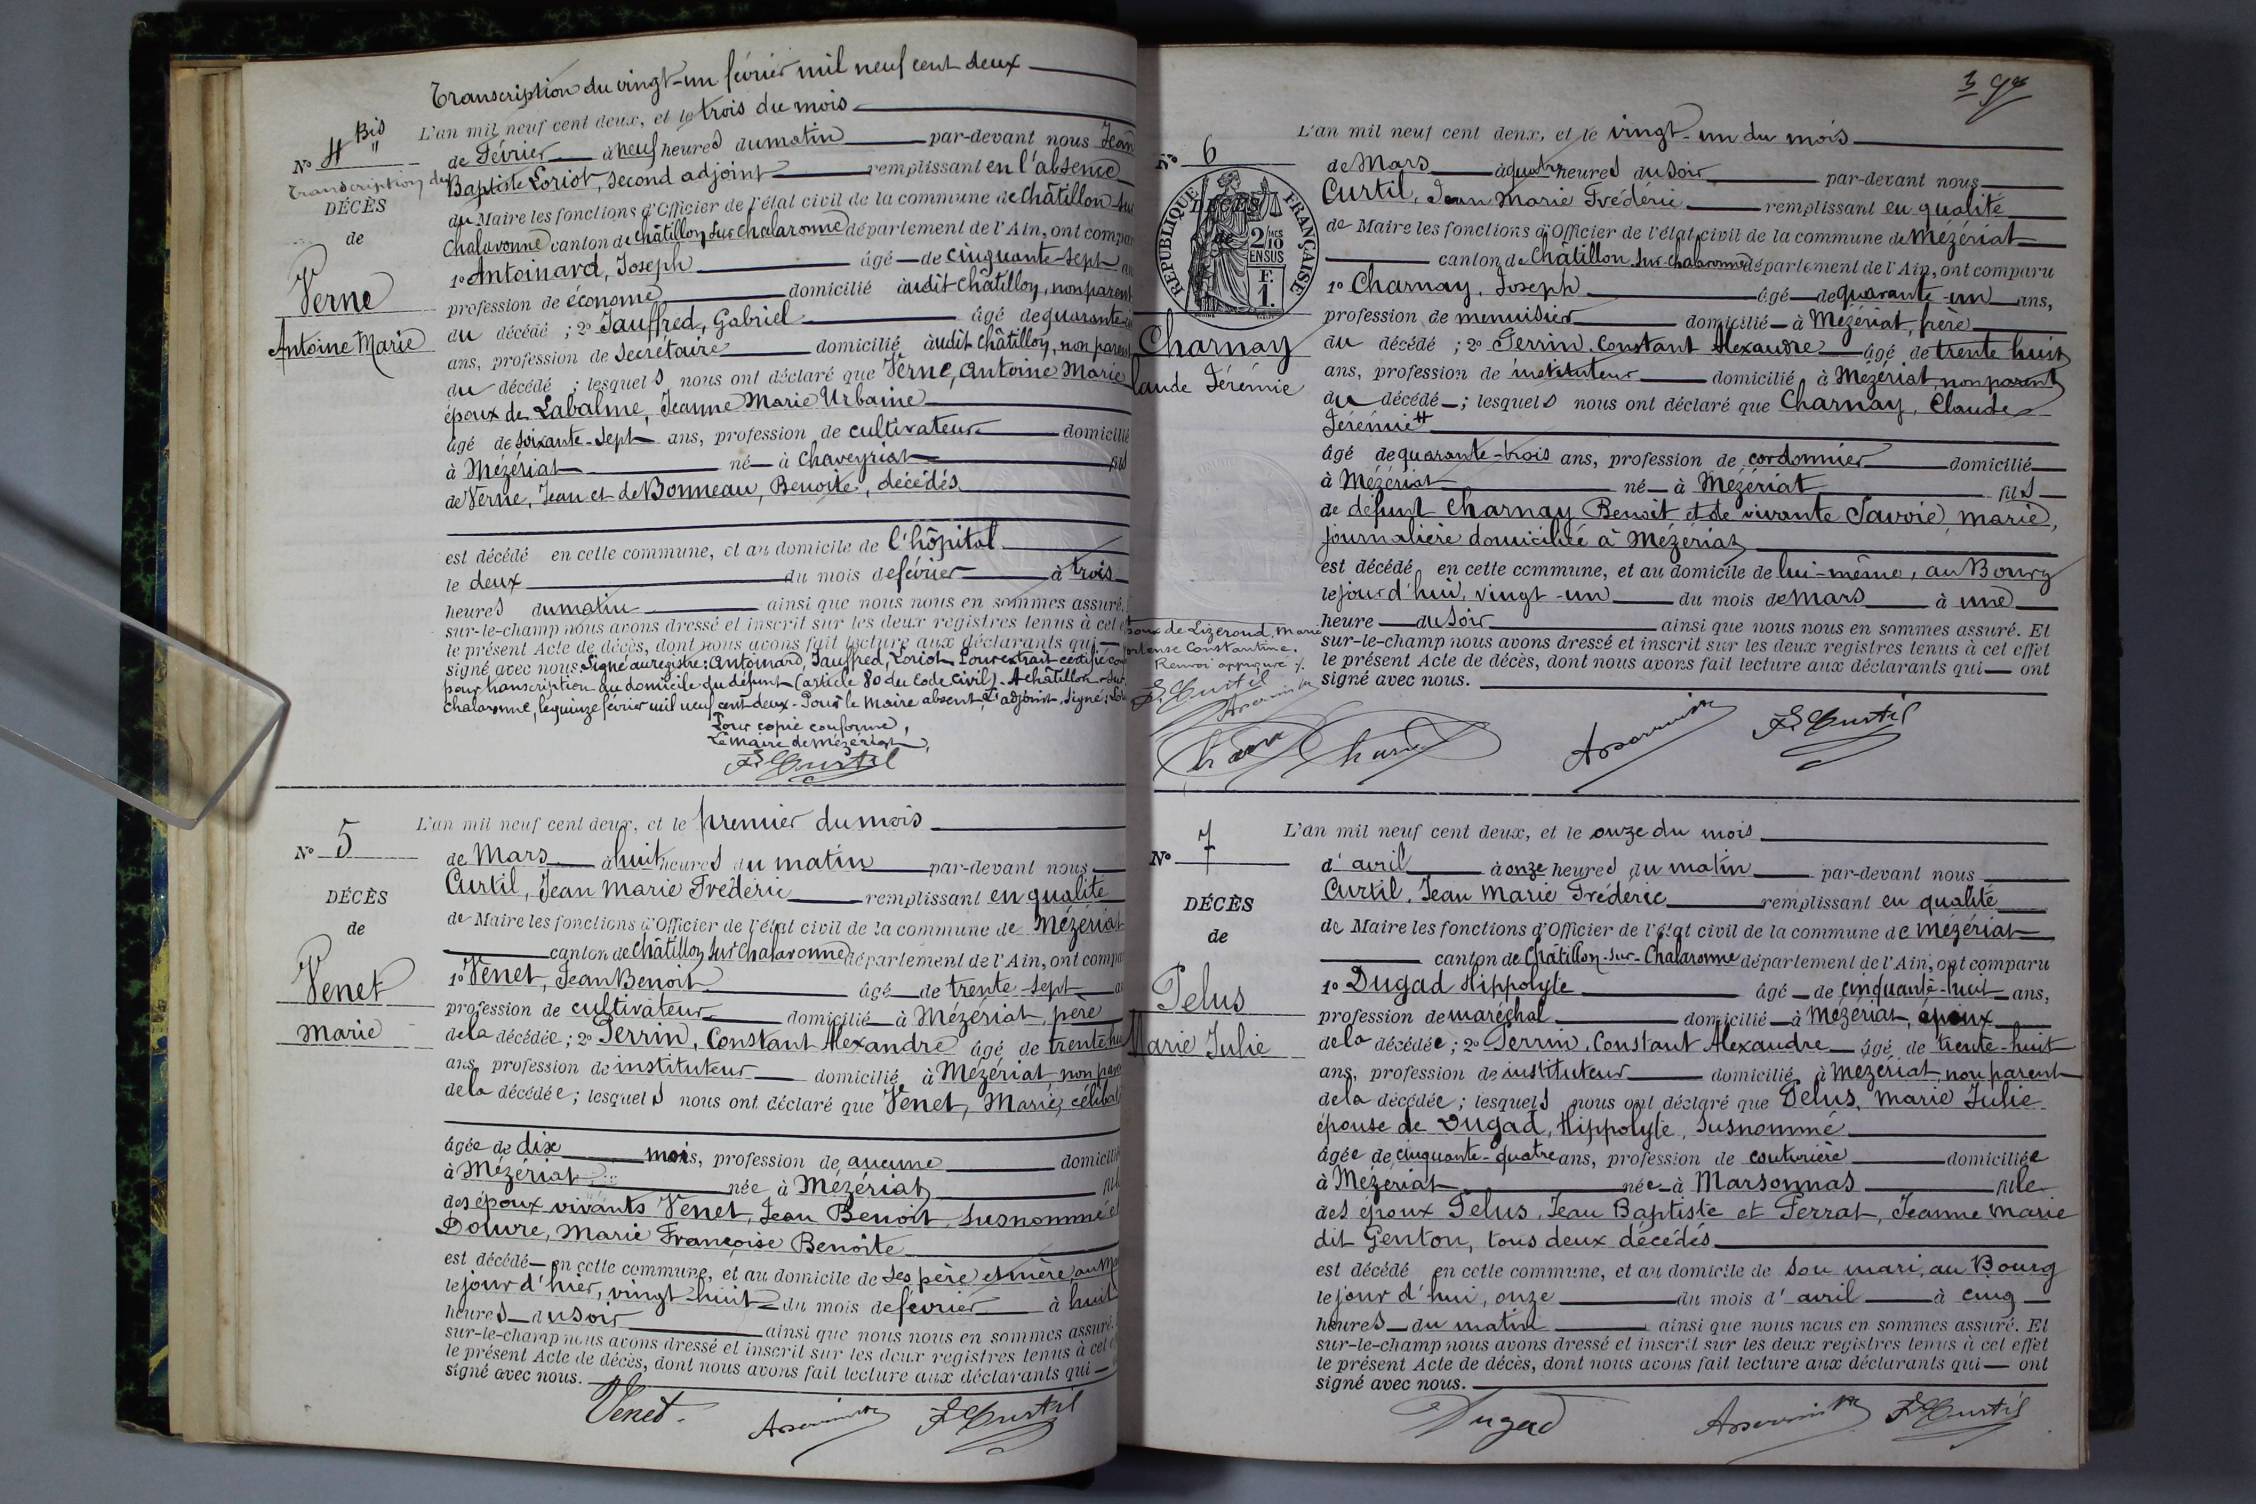 Transcription du vingt-un février mil neuf cent deux
No 4 Bis
Transcription du
DÉCÈS
de
Verne
Antoine Marie
L'an mil neuf cent deux, et le trois du mois
de Février à neuf heures du matin par-devant nous Jean
Baptiste Loriot, second adjoint remplissant en l'absence
du Maire les fonctions d'Officier de l'état civil de la commune de Châtillon sur
Chalaronne canton de Châtillon sur Chalaronne département de l'Ain, ont compa
1o Antoinard, Joseph âgé de cinquante-sept
profession de économe domicilié audit Châtillon, non parent
du décédé ; 2o Jauffred, Gabriel âgé de quarante
ans, profession de Secrétaire domicilié audit Châtillon, non parent
du décédé ; lesquels nous ont déclaré que Verne, Antoine Marie
époux de Labalme, Jeanne Marie Urbaine
âgé de soixante-sept ans, profession de cultivateur domicilié
à Mézériat né à Chaveyriat fils
de Verne, Jean et de Bonneau, Benoite, décédés
est décédé en cette commune, et au domicile de l'hôpital
le deux du mois de février à trois
heures du matin ainsi que nous nous en sommes assuré.
sur-le-champ nous avons dressé et inscrit sur les deux registres tenus à cet
le présent Acte de décès, dont nous avons fait lecture aux déclarants qui
signé avec nous. Signé au registre: Antoinard, Jauffred, Loriot. Pour extrait certifié
pour transcription au domicile du défunt (article 80 du Code Civil). A Châtillon-sur-
Chalaronne, le quinze février mil neuf cent deux - Pour le Maire absent, L'adjoint, signé:
Pour copie conforme,
Le Maire de Mézériat,
F. Curtil
No 5
DÉCÈS
de
Venet
Marie
L'an mil neuf cent deux, et le premier du mois
de Mars à huit heures du matin par-devant nous
Curtil, Jean Marie Frédéric remplissant en qualité
de Maire les fonctions d'Officier de l'état civil de la commune de Mézériat
canton de Châtillon sur Chalaronne département de l'Ain, ont compa
1o Venet, Jean Benoit âgé de trente-sept
profession de cultivateur domicilié à Mézériat, père
de la décédée ; 2o Perrin, Constant Alexandre âgé de trente hui
ans, profession de instituteur domicilié à Mézériat, non pare
de la décédée ; lesquels nous ont déclaré que Venet, Marie, célibat
âgée de dix mois, profession de aucune domicilié
à Mézériat née à Mézériat
des époux vivants Venet, Jean Benoît, susnommé et
Douvre, Marie Françoise Benoîte
est décédé en cette commune, et au domicile de ses père et mère, au
le jour d'hier, vingt huit du mois de février à huit
heures du soir ainsi que nous nous en sommes assuré.
sur-le-champ nous avons dressé et inscrit sur les deux registres tenus à cet
le présent Acte de décès, dont nous avons fait lecture aux déclarants qui
signé avec nous.
Venet. F. Curtil
No 6
RÉPUBLIQUE FRANÇAISE
DÉCÈS
de
2/10 EN SUS
F. 1.
Charnay
laude Jérémie
L'an mil neuf cent deux, et le vingt-un du mois
de Mars à quatre heures du soir par-devant nous
Curtil, Jean Marie Frédéric remplissant en qualité
de Maire les fonctions d'Officier de l'état civil de la commune de Mézériat
canton de Châtillon sur Chalaronne département de l'Ain, ont comparu
1o Charnay, Joseph âgé de quarante-un ans,
profession de menuisier domicilié à Mézériat, frère
du décédé ; 2o Perrin, Constant Alexandre âgé de trente huit
ans, profession de instituteur domicilié à Mézériat, non parent
du décédé ; lesquels nous ont déclaré que Charnay, Claude
Jérémie #
âgé de quarante-trois ans, profession de cordonnier domicilié
à Mézériat né à Mézériat fils
de défunt Charnay Benoit et de vivante Savoie, Marie,
journalière domiciliée à Mézériat
est décédé en cette commune, et au domicile de lui-même, au Bourg
le jour d'hui, vingt-un du mois de Mars à une
heure du soir ainsi que nous nous en sommes assuré. Et
sur-le-champ nous avons dressé et inscrit sur les deux registres tenus à cet effet
le présent Acte de décès, dont nous avons fait lecture aux déclarants qui ont
signé avec nous.
poux de Lizeroud, Marie
ortense Constantine.
Renvoi approuvé
F. Curtil
F. Curtil
No 7
DÉCÈS
de
Pelus
Marie Julie
L'an mil neuf cent deux, et le onze du mois
d'avril à onze heures du matin par-devant nous
Curtil, Jean Marie Frédéric remplissant en qualité
de Maire les fonctions d'Officier de l'état civil de la commune de Mézériat
canton de Châtillon-sur-Chalaronne département de l'Ain, ont comparu
1o Dugad Hippolyte âgé de cinquante-huit ans,
profession de maréchal domicilié à Mézériat, époux
de la décédée ; 2o Perrin, Constant Alexandre âgé de trente-huit
ans, profession de instituteur domicilié à Mézériat, non parent
de la décédée ; lesquels nous ont déclaré que Pelus, Marie Julie
épouse de Dugad, Hippolyte, susnommé
âgée de cinquante-quatre ans, profession de couturière domiciliée
à Mézériat née à Marsonnas fille
des époux Pelus, Jean Baptiste et Ferrat, Jeanne Marie
dit Genton, tous deux décédés
est décédé en cette commune, et au domicile de son mari, au Bourg
le jour d'hui, onze du mois d'avril à cinq
heures du matin ainsi que nous nous en sommes assuré. Et
sur-le-champ nous avons dressé et inscrit sur les deux registres tenus à cet effet
le présent Acte de décès, dont nous avons fait lecture aux déclarants qui ont
signé avec nous.
Dugad F. Curtil